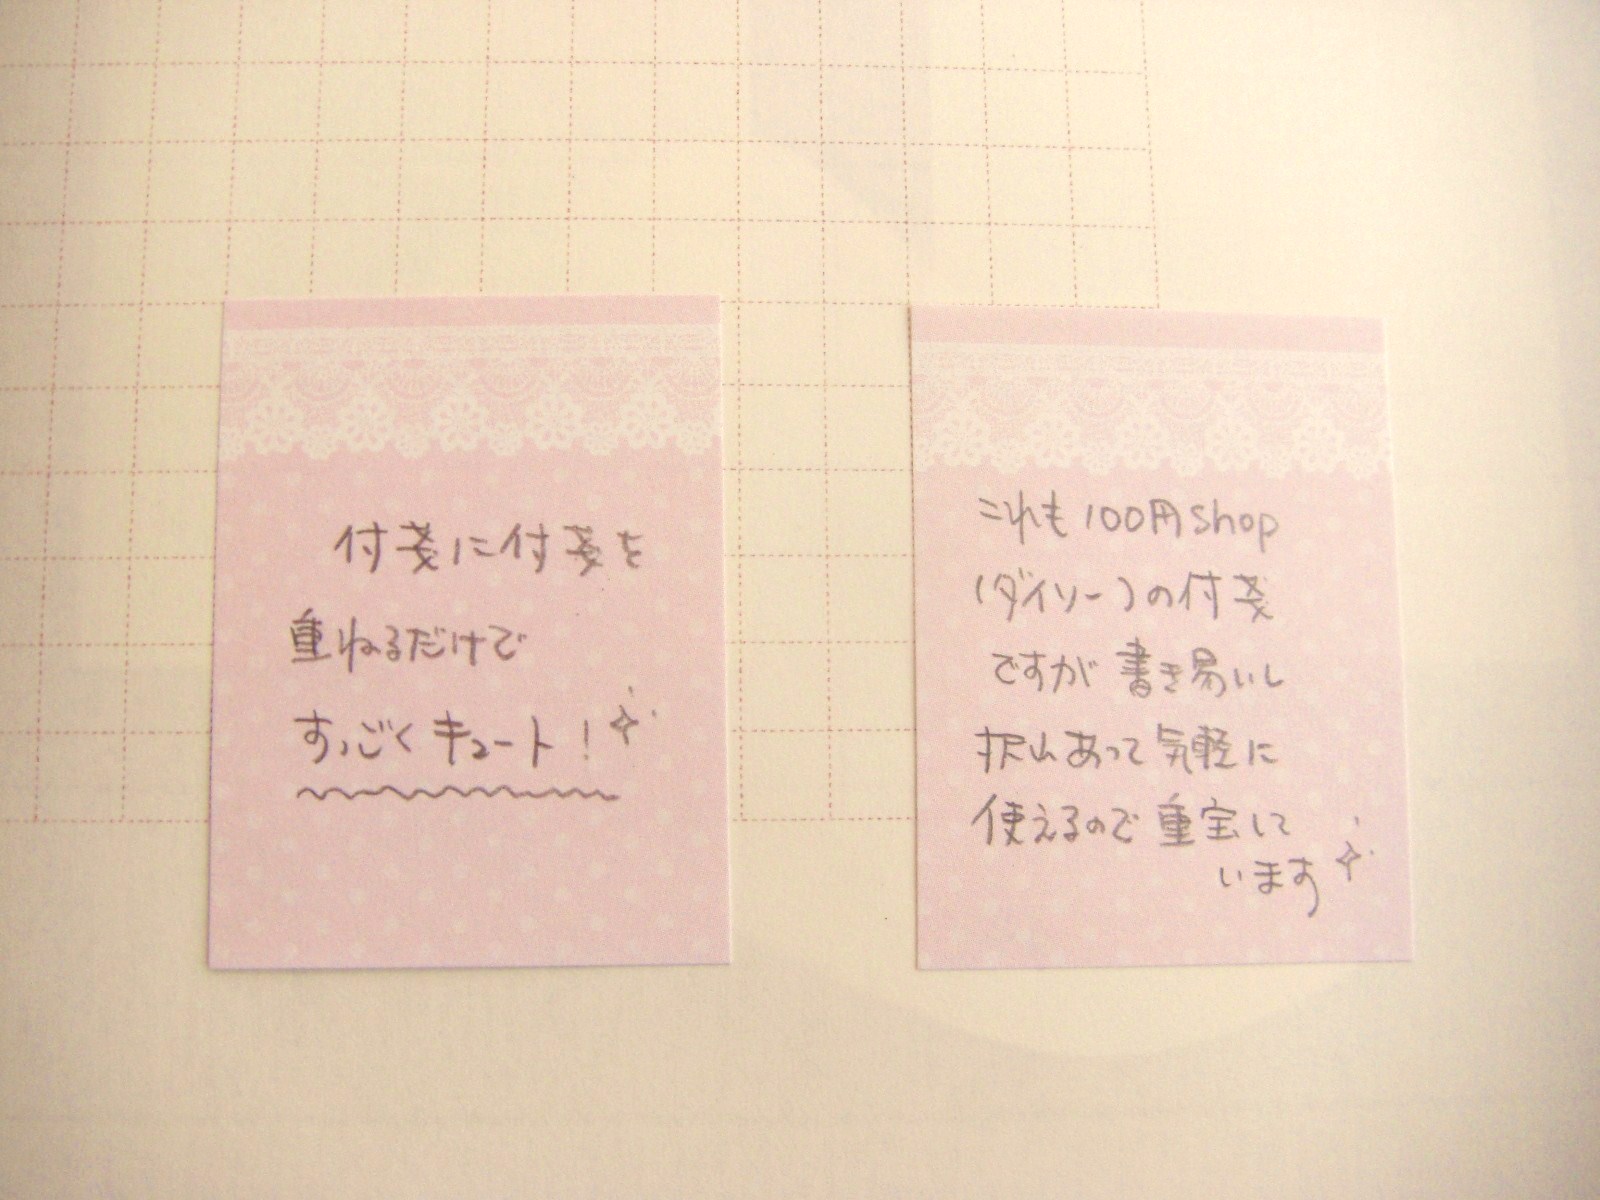 付箋に付箋を
重ねるだけで
すっごくキュート!
これも100円shop
(ダイソー)の付箋
ですが書き易いし
沢山あって気軽に
使えるので重宝して
います